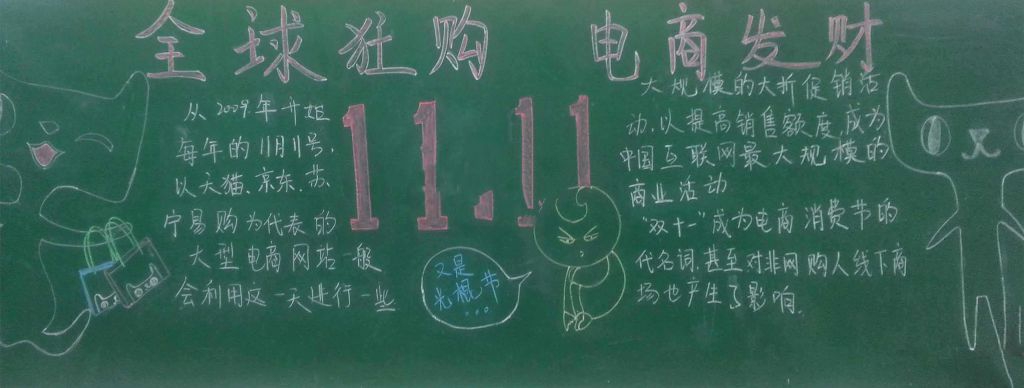 全球狂购 电商发财
从2009年开始
每年的11月11号,
以天猫、京东、苏
宁易购为代表的
大型电商网站一般
会利用这一天进行一些
11.11
又是
光棍节
...
大规模的大折促销活
动,以提高销售额度,成为
中国互联网最大规模的
商业活动
"双十一"成为电商消费节的
代名词,甚至对非网购人线下商
场也产生了影响.